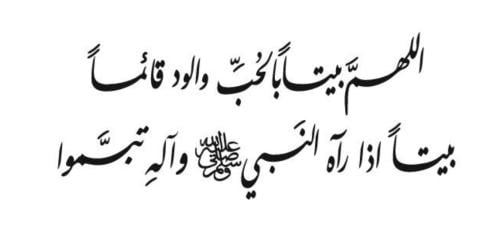 اللهمَّ بيتاً بالحُبِّ والود قائماً
بيتاً اذا رآه النَبي ﷺ وآلهِ تبسَّموا